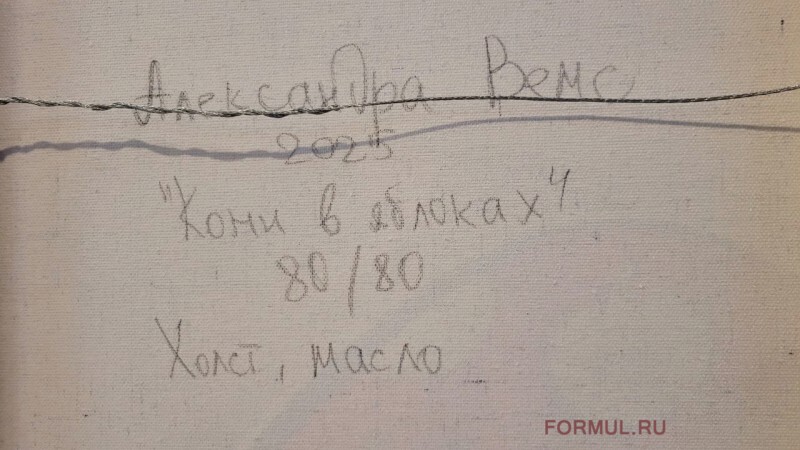 Александра Вемс
2025
"Кони в яблоках"
80/80
Холст, масло
FORMUL.RU